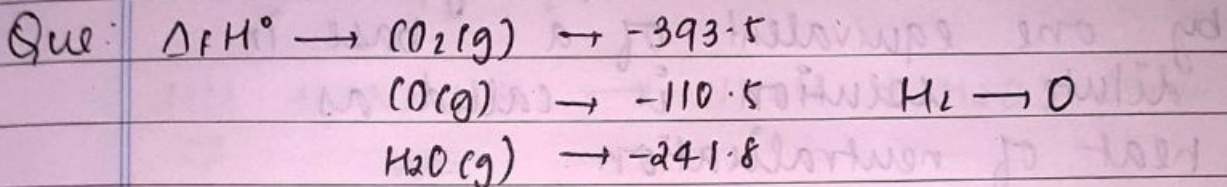 Que: ΔfH° → CO2(g) → -393.5
CO(g) → -110.5 H2 → 0
H2O(g) → -241.8